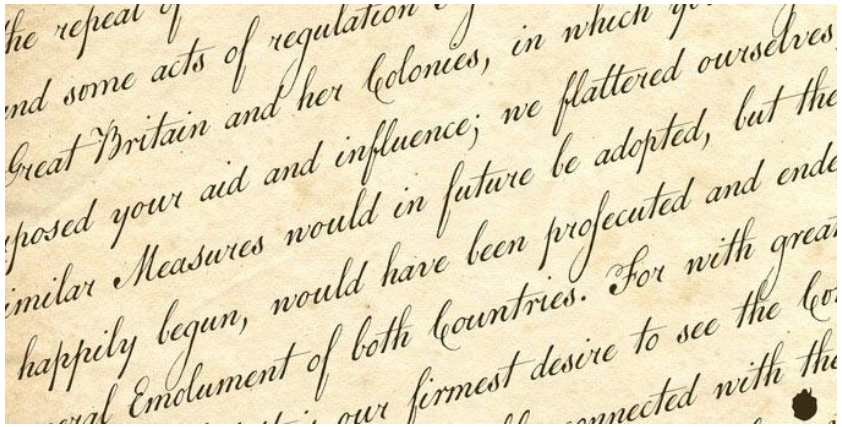 the repeal of
and some acts of regulation
Great Britain and her Colonies, in which
your aid and influence; we flattered ourselves,
Measures would in future be adopted, but the
happily begun, would have been prosecuted and
Emolument of both Countries. For with great
our firmest desire to see the
connected with the